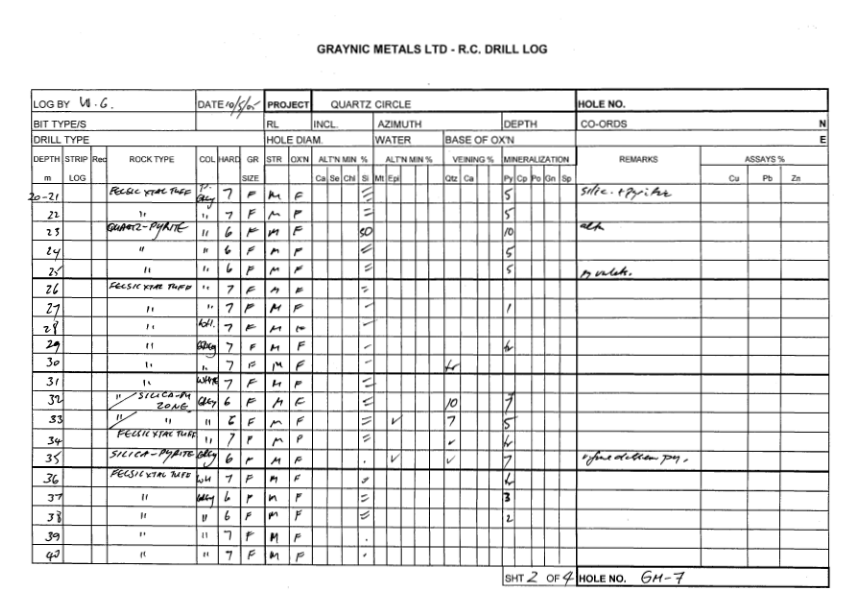 GRAYNIC METALS LTD - R.C. DRILL LOG
LOG BY W.G. DATE 10/5/05 PROJECT QUARTZ CIRCLE HOLE NO.
BIT TYPE/S RL INCL. AZIMUTH DEPTH CO-ORDS N
DRILL TYPE HOLE DIAM. WATER BASE OF OX'N E
DEPTH STRIP Rec ROCK TYPE COL HARD GR STR OX'N ALT'N MIN % ALT'N MIN % VEINING % MINERALIZATION REMARKS ASSAYS %
m LOG SIZE Ca Se Chl Si Mt Epi Qtz Ca Py Cp Po Gn Sp Cu Pb Zn
20-21 FELSIC XTAL TUFF GREY 7 F M F = 5 silic. + pyrite
22 " " 7 F M F = 5
23 QUARTZ-PYRITE " 6 F M F 50 10
24 " " 6 F M F = 5
25 " " 6 F M F = 5
26 FELSIC XTAL TUFF " 7 F M F =
27 " " 7 F M F - 1
28 " 7 F M -
29 " GREY 7 F M F - tr
30 " " 7 F M F - tr
31 " WHITE 7 F M F =
32 " / SILICA-PY ZONE GREY 6 F M F = 10 7
33 " / " " 6 F M F = ✓ 7 5
34 FELSIC XTAL TUFF " 7 F M F = ✓ tr
35 SILICA-PYRITE GREY 6 F M F . ✓ ✓ 7
36 FELSIC XTAL TUFF WH 7 F M F tr
37 " GREY 6 F M F = 3
38 " " 6 F M F = 2
39 " " 7 F M F .
40 " " 7 F M F .
SHT 2 OF 4 HOLE NO. GM-7